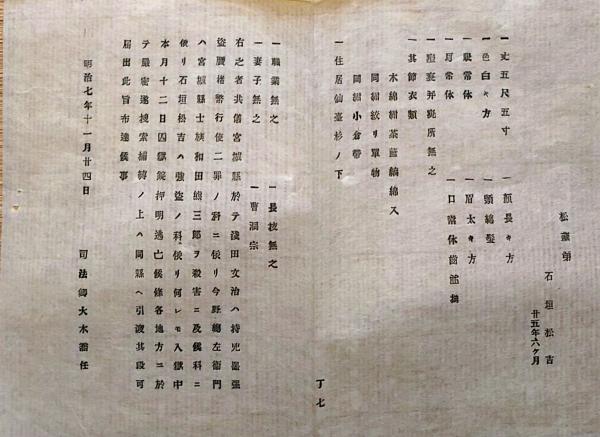 松蔵弟
石垣松吉
廿五年六ヶ月
一丈五尺五寸 一顔長キ方
一色白キ方 一頬総髪
一眼常体 一眉太キ方
一耳常体 一口常体歯並揃
一瘢痕并斑所無之
一其節衣類
木綿紺茶藍縞綿入
同紺絞リ單物
同紺小倉帯
一住居仙臺杉ノ下
丁七
一職業無之 一長技無之
一妻子無之 一曹洞宗
右之者共儀宮城縣於テ淺田文治ハ持兇器強
盗贋楮幣行使二罪ノ科ニ依リ今野總左衛門
ハ宮城縣士族和田熊三郎ヲ殺害ニ及候科ニ
依リ石垣松吉ハ強盗ノ科依リ何レモ入獄中
本月十二日囚獄錠押明逃亡候條各地方ニ於
テ嚴密遂捜索捕縛ノ上ハ同縣ヘ引渡其段可
届出此旨布達候事
明治七年十一月廿四日 司法卿大木喬任